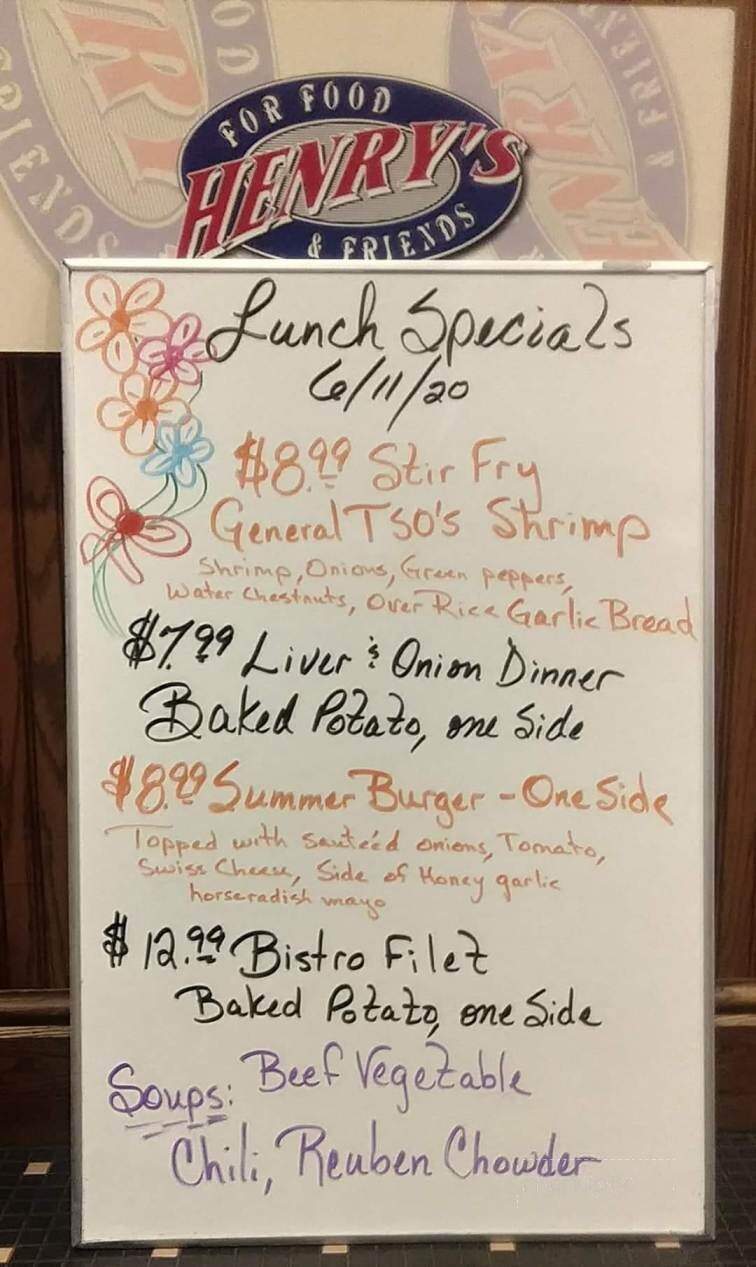 FOR FOOD
HENRY'S
& FRIENDS
Lunch Specials
6/11/20
$8.99 Stir Fry
General TSO's Shrimp
Shrimp, Onions, Green peppers,
Water Chestnuts, Over Rice Garlic Bread
$7.99 Liver & Onion Dinner
Baked Potato, one Side
$8.99 Summer Burger - One Side
Topped with sauteéd onions, Tomato,
Swiss Cheese, Side of Honey garlic
horseradish mayo
$12.99 Bistro Filet
Baked Potato, one Side
Soups: Beef Vegetable
Chili, Reuben Chowder